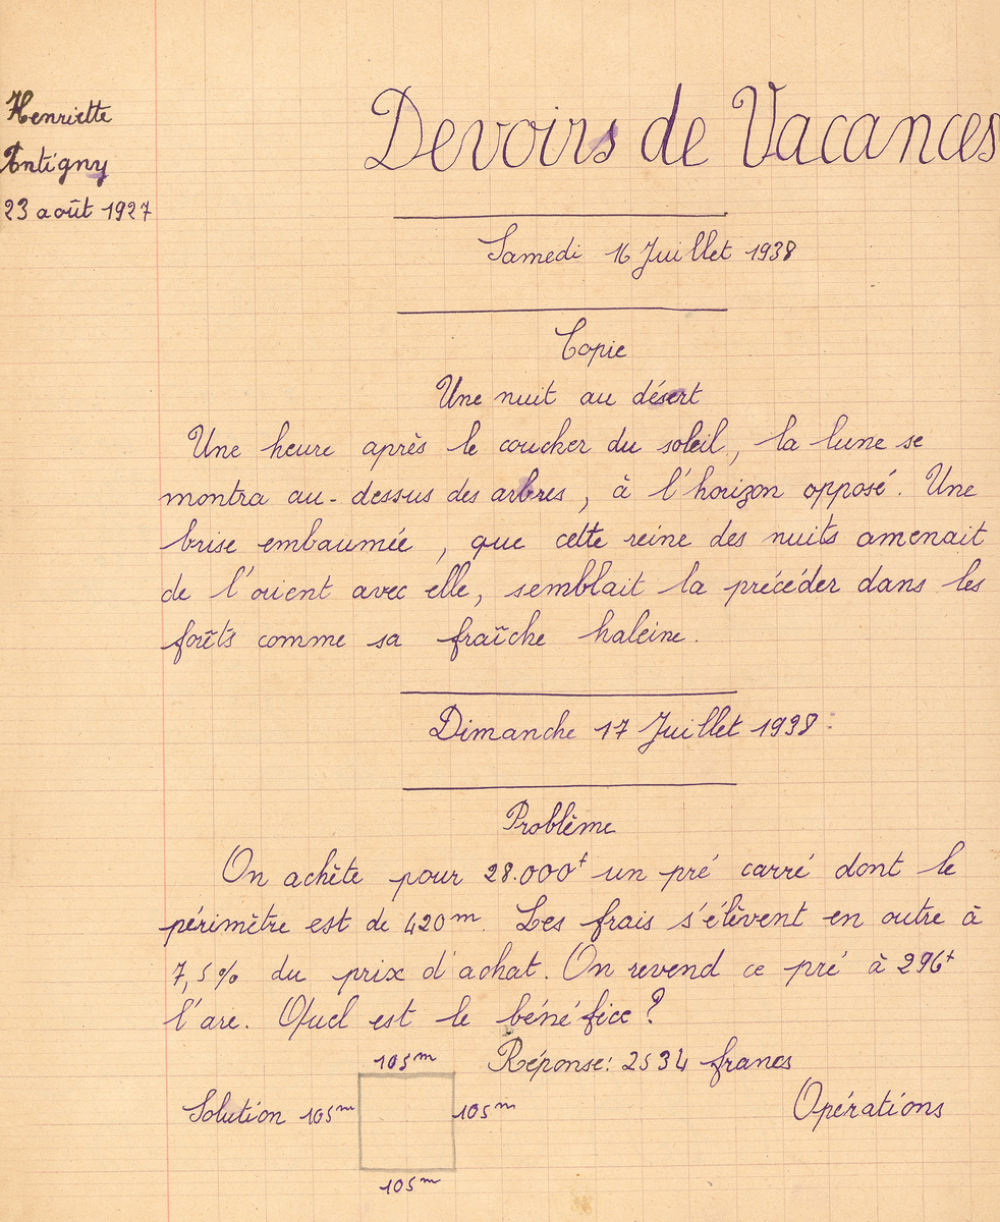 Henriette
Antigny
23 août 1927
Devoirs de Vacances
Samedi 16 Juillet 1938
Copie
Une nuit au désert
Une heure après le coucher du soleil, la lune se
montra au-dessus des arbres, à l'horizon opposé. Une
brise embaumée, que cette reine des nuits amenait
de l'orient avec elle, semblait la précéder dans les
forêts comme sa fraîche haleine.
Dimanche 17 Juillet 1938:
Problème
On achète pour 28.000f un pré carré dont le
périmètre est de 420m. Les frais s'élèvent en outre à
7,5% du prix d'achat. On revend ce pré à 296f
l'are. Quel est le bénéfice?
105m Réponse: 2534 francs
Solution 105m 105m Opérations
105m